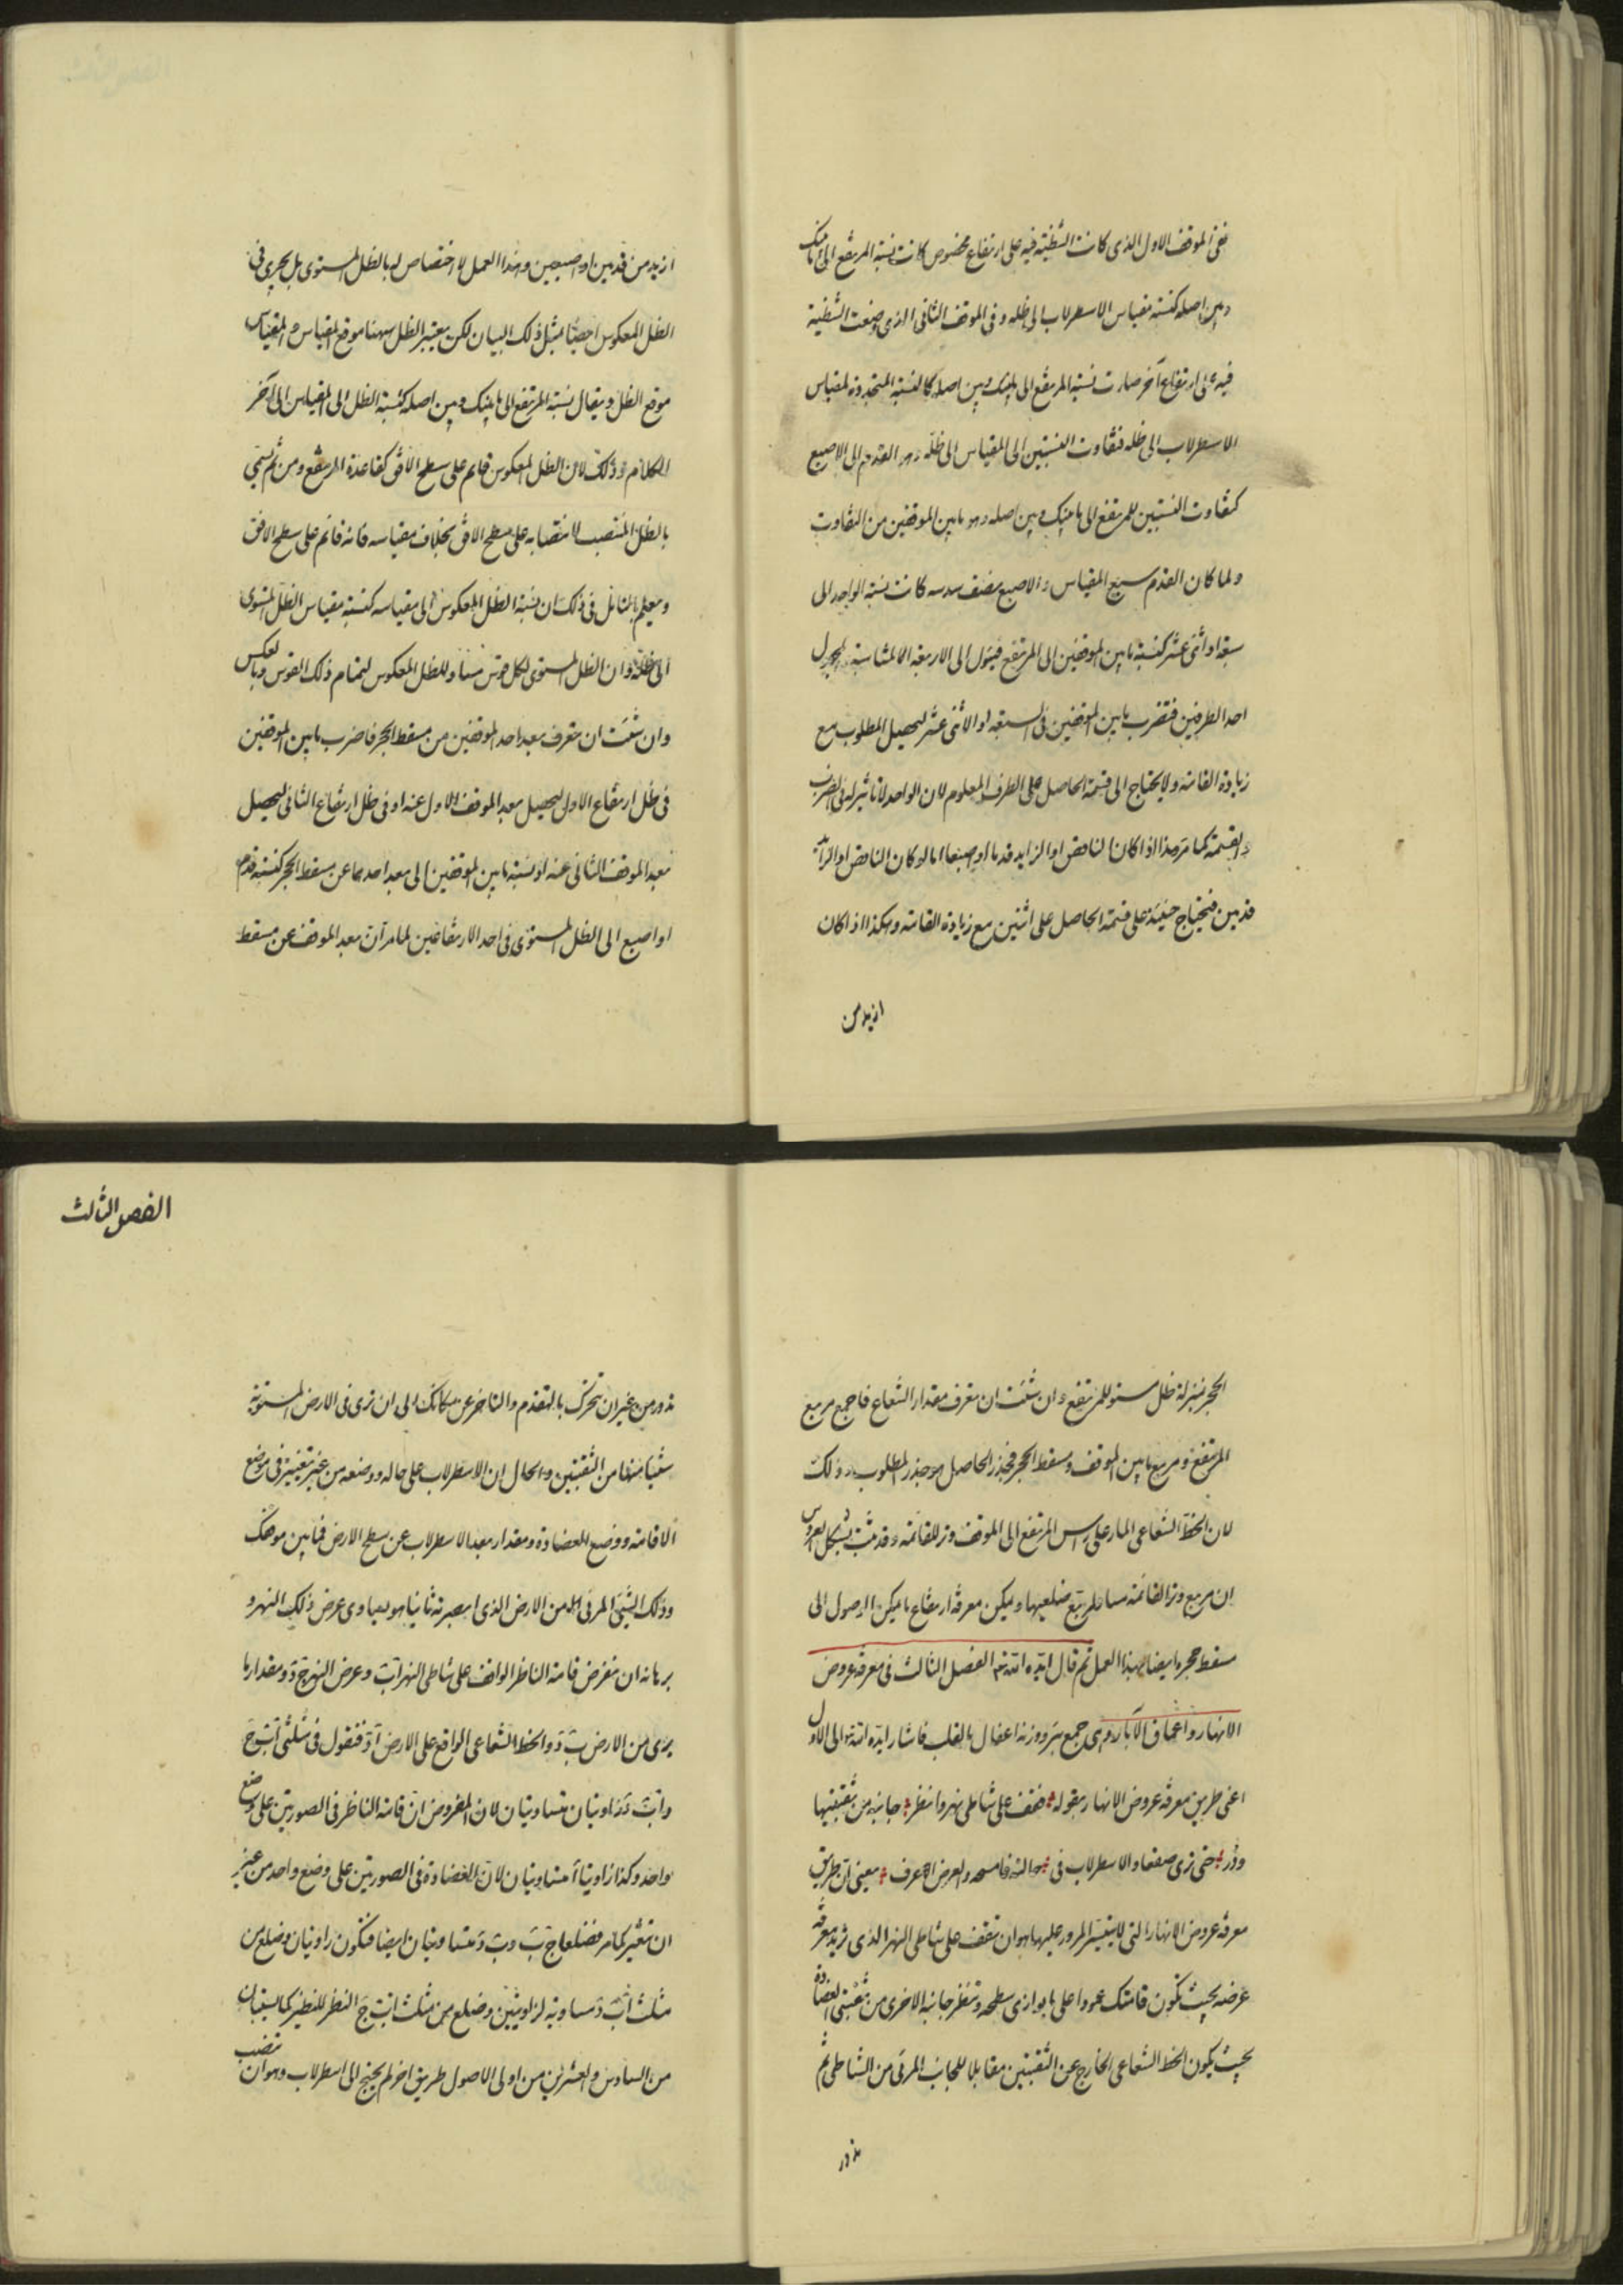 ففى الموقف الاول الذى كانت الشظية فيه على ارتفاع مخصوص كانت نسبة المرتفع الى ما بينك
وبين اصله كنسبة مقياس الاسطرلاب الى ظله وفى الموقف الثانى الذى وضعت الشظية
فيه على ارتفاع آخر صارت نسبة المرتفع الى ما بينك وبين اصله كالنسبة المتجددة لمقياس
الاسطرلاب الى ظله فتفاوت النسبتين الى المقياس الى ظله وهو القدم الى الاصبع
كتفاوت النسبتين للمرتفع الى ما بينك وبين اصله وهو ما بين الموقفين من التفاوت
ولما كان القدم سبع المقياس والاصبع نصف سدسه كانت نسبة الواحد الى
سبعة او اثنى عشر كنسبة ما بين الموقفين الى المرتفع فيئول الى الاربعة المتناسبة المجهول
احد الطرفين فتضرب ما بين الموقفين فى السبعة او الاثنى عشر ليحصل المطلوب مع
زيادة القامة ولا يحتاج الى قسمة الحاصل على الطرف المعلوم لان الواحد لا تاثير له فى الضرب
والقسمة كما مر هذا اذا كان الناقص او الزايد قدما او اصبعا اما لو كان الناقص او الزائد
قدمين فيحتاج حينئذ على قسمة الحاصل على اثنين مع زيادة القامة وهكذا اذا كان
ازيد من
ازيد من قدمين او اصبعين وهذا العمل لا اختصاص له بالظل المستوى بل يجرى فى
الظل المعكوس ايضا بمثل ذلك البيان لكن يعتبر الظل ههنا موقع المقياس والمقياس
موقع الظل ويقال نسبة المرتفع الى ما بينك وبين اصله كنسبة الظل الى المقياس الى آخر
الكلام وذلك لان الظل المعكوس قايم على سطح الافق كقاعدة المرتفع ومن ثم سمى
بالظل المنتصب لانتصابه على سطح الافق بخلاف مقياسه فانه قائم على سطح الافق
ويعلم بالتامل فى ذلك ان نسبة الظل المعكوس الى مقياسه كنسبة مقياس الظل المستوى
الى ظله وان الظل المستوى لكل قوس مساو للظل المعكوس لتمام ذلك القوس وبالعكس
وان شئت ان تعرف بعد احد الموقفين من مسقط الحجر فاضرب ما بين الموقفين
فى ظل ارتفاع الاول ليحصل بعد الموقف الاول عنه او فى ظل ارتفاع الثانى ليحصل
بعد الموقف الثانى عنه اذ نسبة ما بين الموقفين الى بعد احدهما عن مسقط الحجر كنسبة قدم
او اصبع الى الظل المستوى فى احد الارتفاعين لما مر آن بعد الموقف عن مسقط
الفصل الثالث
الحجر بمنزلة ظل مستو للمرتفع وان شئت ان تعرف مقدار الشعاع فاجمع مربع
المرتفع ومربع ما بين الموقف ومسقط الحجر فجذر الحاصل هو جذر المطلوب وذلك
لان الخط الشعاعى المار على راس المرتفع الى الموقف وتر للقائمة وقد ثبت بشكل العروس
ان مربع وتر القائمة مساو لمربع ضلعيها ويمكن معرفة ارتفاع ما يمكن الوصول الى
مسقط حجره ايضا بهذا العمل ثم قال ايده الله تعالى الفصل الثالث فى معرفة عروض
الانهار واعماق الآبار وهى جمع بئر ووزنه اعفال بالقلب فاشار ايده الله الى الاول
اعنى طريق معرفة عروض الانهار بقوله فقف على شاطى نهر وانظر جانبه من ثقبتيها
ودر حتى ترى صفعا والاسطرلاب فى حالته فامسحه والعرض اعرف يعنى ان طريق
معرفة عروض الانهار التى لا يتيسر المرور عليها هو ان تقف على شاطى النهر الذى تريد معرفة
عرضه بحيث تكون قامتك عمودا على ما يوازى سطحه وتنظر جانبه الاخرى من ثقبتى العضادة
بحيث يكون الخط الشعاعى الخارج عن الثقبتين مقابلا للجانب المرئى من الشاطى ثم
تدور
تدور من غير ان تتحرك بالتقدم والتاخر عن مكانك الى ان ترى فى الارض المستوية
شيئا منها من الثقبتين والحال ان الاسطرلاب على حاله ووضعه من غير تغيير فى موضع
الاقامة ووضع العضادة ومقدار بعد الاسطرلاب عن سطح الارض فما بين موقفك
وذلك الشيئ المرئى من الارض الذى ابصرته ثانيا هو يساوى عرض ذلك النهر و
برهانه ان نفرض قامة الناظر الواقف على شاطى النهر اب وعرض النهر ب ج ومقدار ما
يرى من الارض ب د والخط الشعاعى الواقع على الارض ا د فنقول فى مثلثى اب ج
واب د زاويتان متساويتان لان المفروض ان قامة الناظر فى الصورتين على وضع
واحد وكذا زاويتا ا متساويتان لان العضادة فى الصورتين على وضع واحد من غير
ان تتغير كما مر فضلعا ج ب وب د متساويتان ايضا فتكون زاويتان وضلع من
مثلث اب د مساوية لزاويتين وضلع من مثلث اب ج النظر للنظير كما يستبان
من السادس والعشرين من اولى الاصول طريق اخر لم يحتج الى اسطرلاب وهو ان تنصب